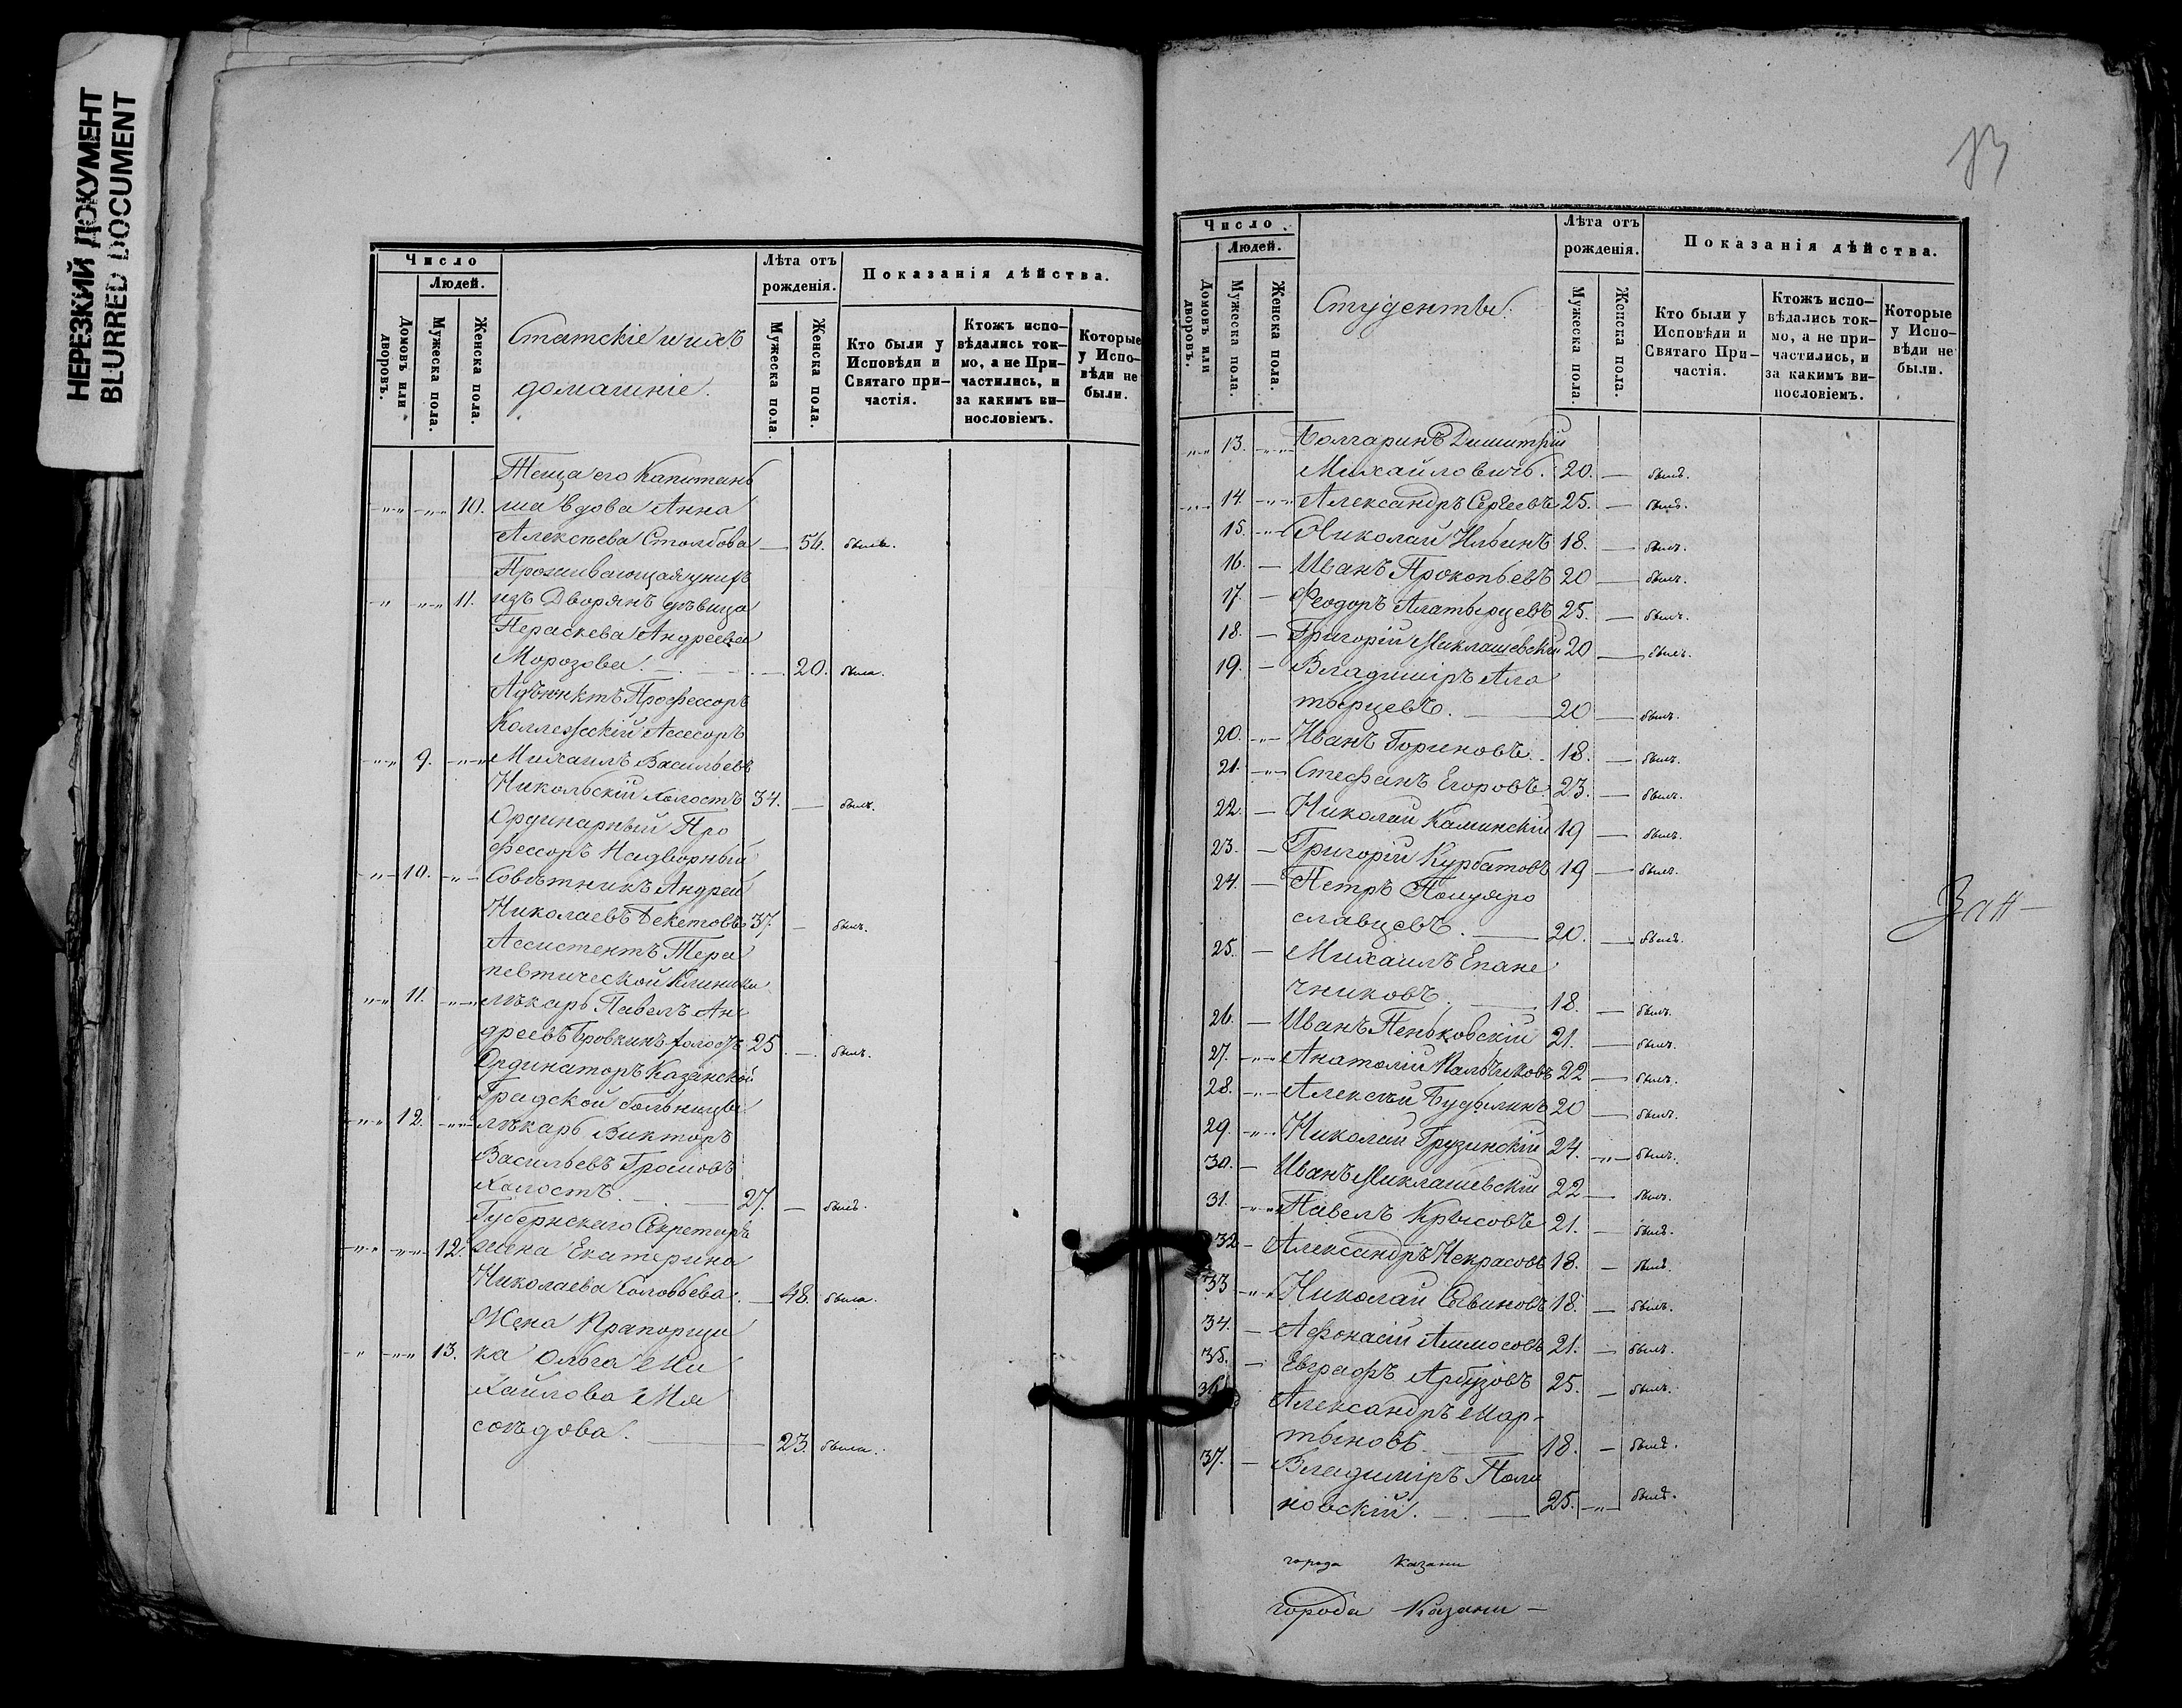 НЕРЕЗКИЙ ДОКУМЕНТ
BLURRED DOCUMENT
Число
Людей.
Домовъ или дворовъ.
Мужеска пола.
Женска пола.
Статскіе и ихъ
домашніе.
Лѣта отъ
рожденія.
Мужеска пола.
Женска пола.
Показанія дѣйства.
Кто были у
Исповѣди и
Святаго при-
частія.
Ктожъ испо-
вѣдались ток-
мо, а не При-
частились, и
за какимъ ви-
нословіемъ.
Которые
у Испо-
вѣди не
были.
Теща его Капитань
10. ша вдова Анна
Алексѣева Столбова — 56. была.
Проживающая у нихъ
11. изъ Дворянъ дѣвица
Пераскева Андреева
Морозова. — 20. была.
Адъюнктъ Профессоръ
Коллежскій Ассесоръ
9. Михаилъ Васильевъ
Никольскій холостъ 34. — былъ.
Ординарный Про
фессоръ Надворный
10. Совѣтникъ Андрей
Николаевъ Бекетовъ 37. — былъ.
Ассистентъ Тера
певтической Клиники
11. лѣкарь Павелъ Ан
дреевъ Бровкинъ холостъ 25. — былъ.
Ординаторъ Казанской
Градской больницы
12. лѣкарь Викторъ
Васильевъ Громовъ
холостъ. — 27. — былъ.
Губернскаго Секретаря
12. жена Екатерина
Николаева Соловьева. — 48. была.
Жена Прапорщи
13. ка Ольга Ми
хайлова Мя
соѣдова. — 23. была.
Число
Людей.
Домовъ или дворовъ.
Мужеска пола.
Женска пола.
Студенты.
Лѣта отъ
рожденія.
Мужеска пола.
Женска пола.
Показанія дѣйства.
Кто были у
Исповѣди и
Святаго При-
частія.
Ктожъ испо-
вѣдались ток-
мо, а не при-
частились, и
за какимъ ви-
нословіемъ.
Которые
у Испо-
вѣди не
были.
13. Болгаринъ Димитрій
Михайловичь. 20. — былъ.
14. Александръ Сергеевъ 25. — былъ.
15. Николай Ильинъ 18. — былъ.
16. — Иванъ Прокопьевъ 20 — былъ.
17. — Феодоръ Алатырцевъ 25. — былъ.
18. — Григорій Миклашевскій 20 — былъ.
19. — Владиміръ Ала
тырцевъ. — 20 — былъ.
20. Иванъ Гориновъ. 18. — былъ.
21. Стефанъ Егоровъ. 23. — былъ.
22. — Николай Каминскій 19 — былъ.
23. — Григорій Курбатовъ 19 — былъ.
24. — Петръ Полуяро
славцевъ. — 20. — былъ.
25. — Михаилъ Епане
чниковъ. — 18. — былъ.
26. — Иванъ Пеньковскій 21. — былъ.
27. Анатолій Пальчиковъ 22 — былъ.
28. Алексѣй Будылинъ 20 — былъ.
29. Николай Грузинскій 24. былъ.
30. — Иванъ Миклашевскій 22 — былъ.
31. Павелъ Крысовъ 21. — былъ.
32 — Александръ Некрасовъ 18. — былъ.
33 Николай Савиновъ 18. — былъ.
34. — Афонасій Аммосовъ 21. — былъ.
35. — Евграфъ Арбузовъ 25. — былъ.
36. Александръ Мар-
тыновъ. — 18. — былъ.
37. — Владиміръ Поли
новскій. — 25. былъ.
города Казани
города Казани —